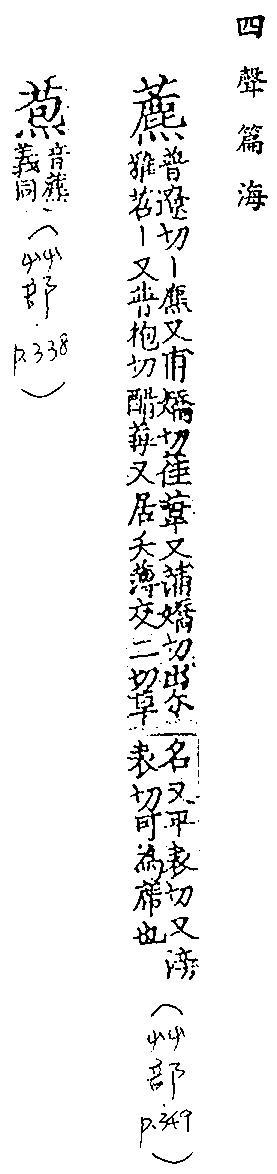 四聲篇海
藨
普遼切丨麃又甫嬌切萑葦又蒲嬌切出尒
雅苕丨又普抱切醋莓又居夭薄交二切草
名又平表切又滂
表切可為蓆也
（艸部 p.349）
音藨
義同
（艸部．p.338）